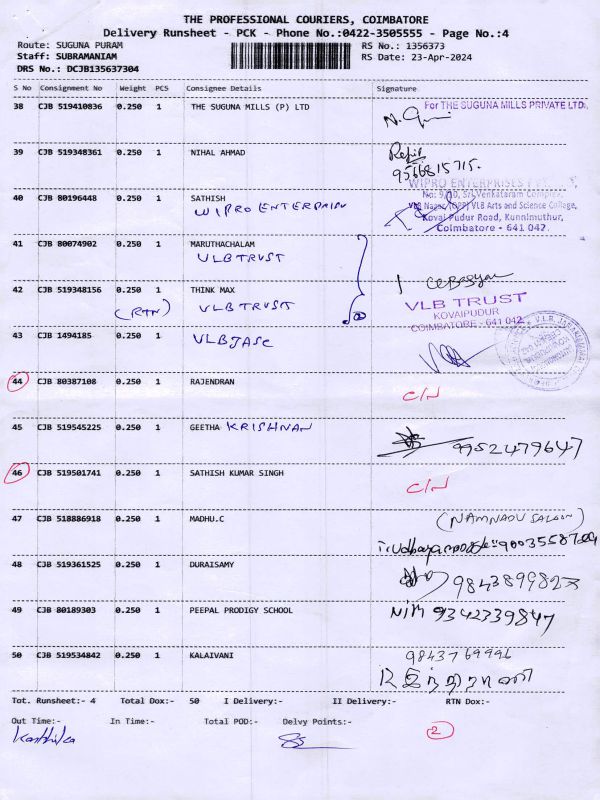 THE PROFESSIONAL COURIERS, COIMBATORE
Delivery Runsheet - PCK - Phone No.:0422-3505555 - Page No.:4
Route: SUGUNA PURAM
RS No.: 1356373
Staff: SUBRAMANIAM
RS Date: 23-Apr-2024
DRS No.: DCJB135637304
S No Consignment No Weight PCS Consignee Details Signature
38 CJB 519410836 0.250 1 THE SUGUNA MILLS (P) LTD
For THE SUGUNA MILLS PRIVATE LTD.,
39 CJB 519348361 0.250 1 NIHAL AHMAD
9566815715.
WIPRO ENTERPRISES
40 CJB 80196448 0.250 1 SATHISH
WIPRO ENTERPRISE
VLB Arts and Science College,
Kovai Pudur Road, Kunnimuthur,
Coimbatore - 641 042.
41 CJB 80074902 0.250 1 MARUTHACHALAM
VLB TRUST
42 CJB 519348156 0.250 1 THINK MAX
(RTN) VLB TRUST
VLB TRUST
KOVAIPUDUR
COIMBATORE - 641 042
43 CJB 1494185 0.250 1 VLBJASC
44 CJB 80387108 0.250 1 RAJENDRAN
C/N
45 CJB 519545225 0.250 1 GEETHA KRISHNAN
9952479647
46 CJB 519501741 0.250 1 SATHISH KUMAR SINGH
C/N
47 CJB 518886918 0.250 1 MADHU.C
(NAMNADU SALOON)
48 CJB 519361525 0.250 1 DURAISAMY
49 CJB 80189303 0.250 1 PEEPAL PRODIGY SCHOOL
9342339847
50 CJB 519534842 0.250 1 KALAIVANI
Tot. Runsheet:- 4 Total Dox:- 50 I Delivery:- II Delivery:- RTN Dox:-
Out Time:- In Time:- Total POD:- Delvy Points:-
2